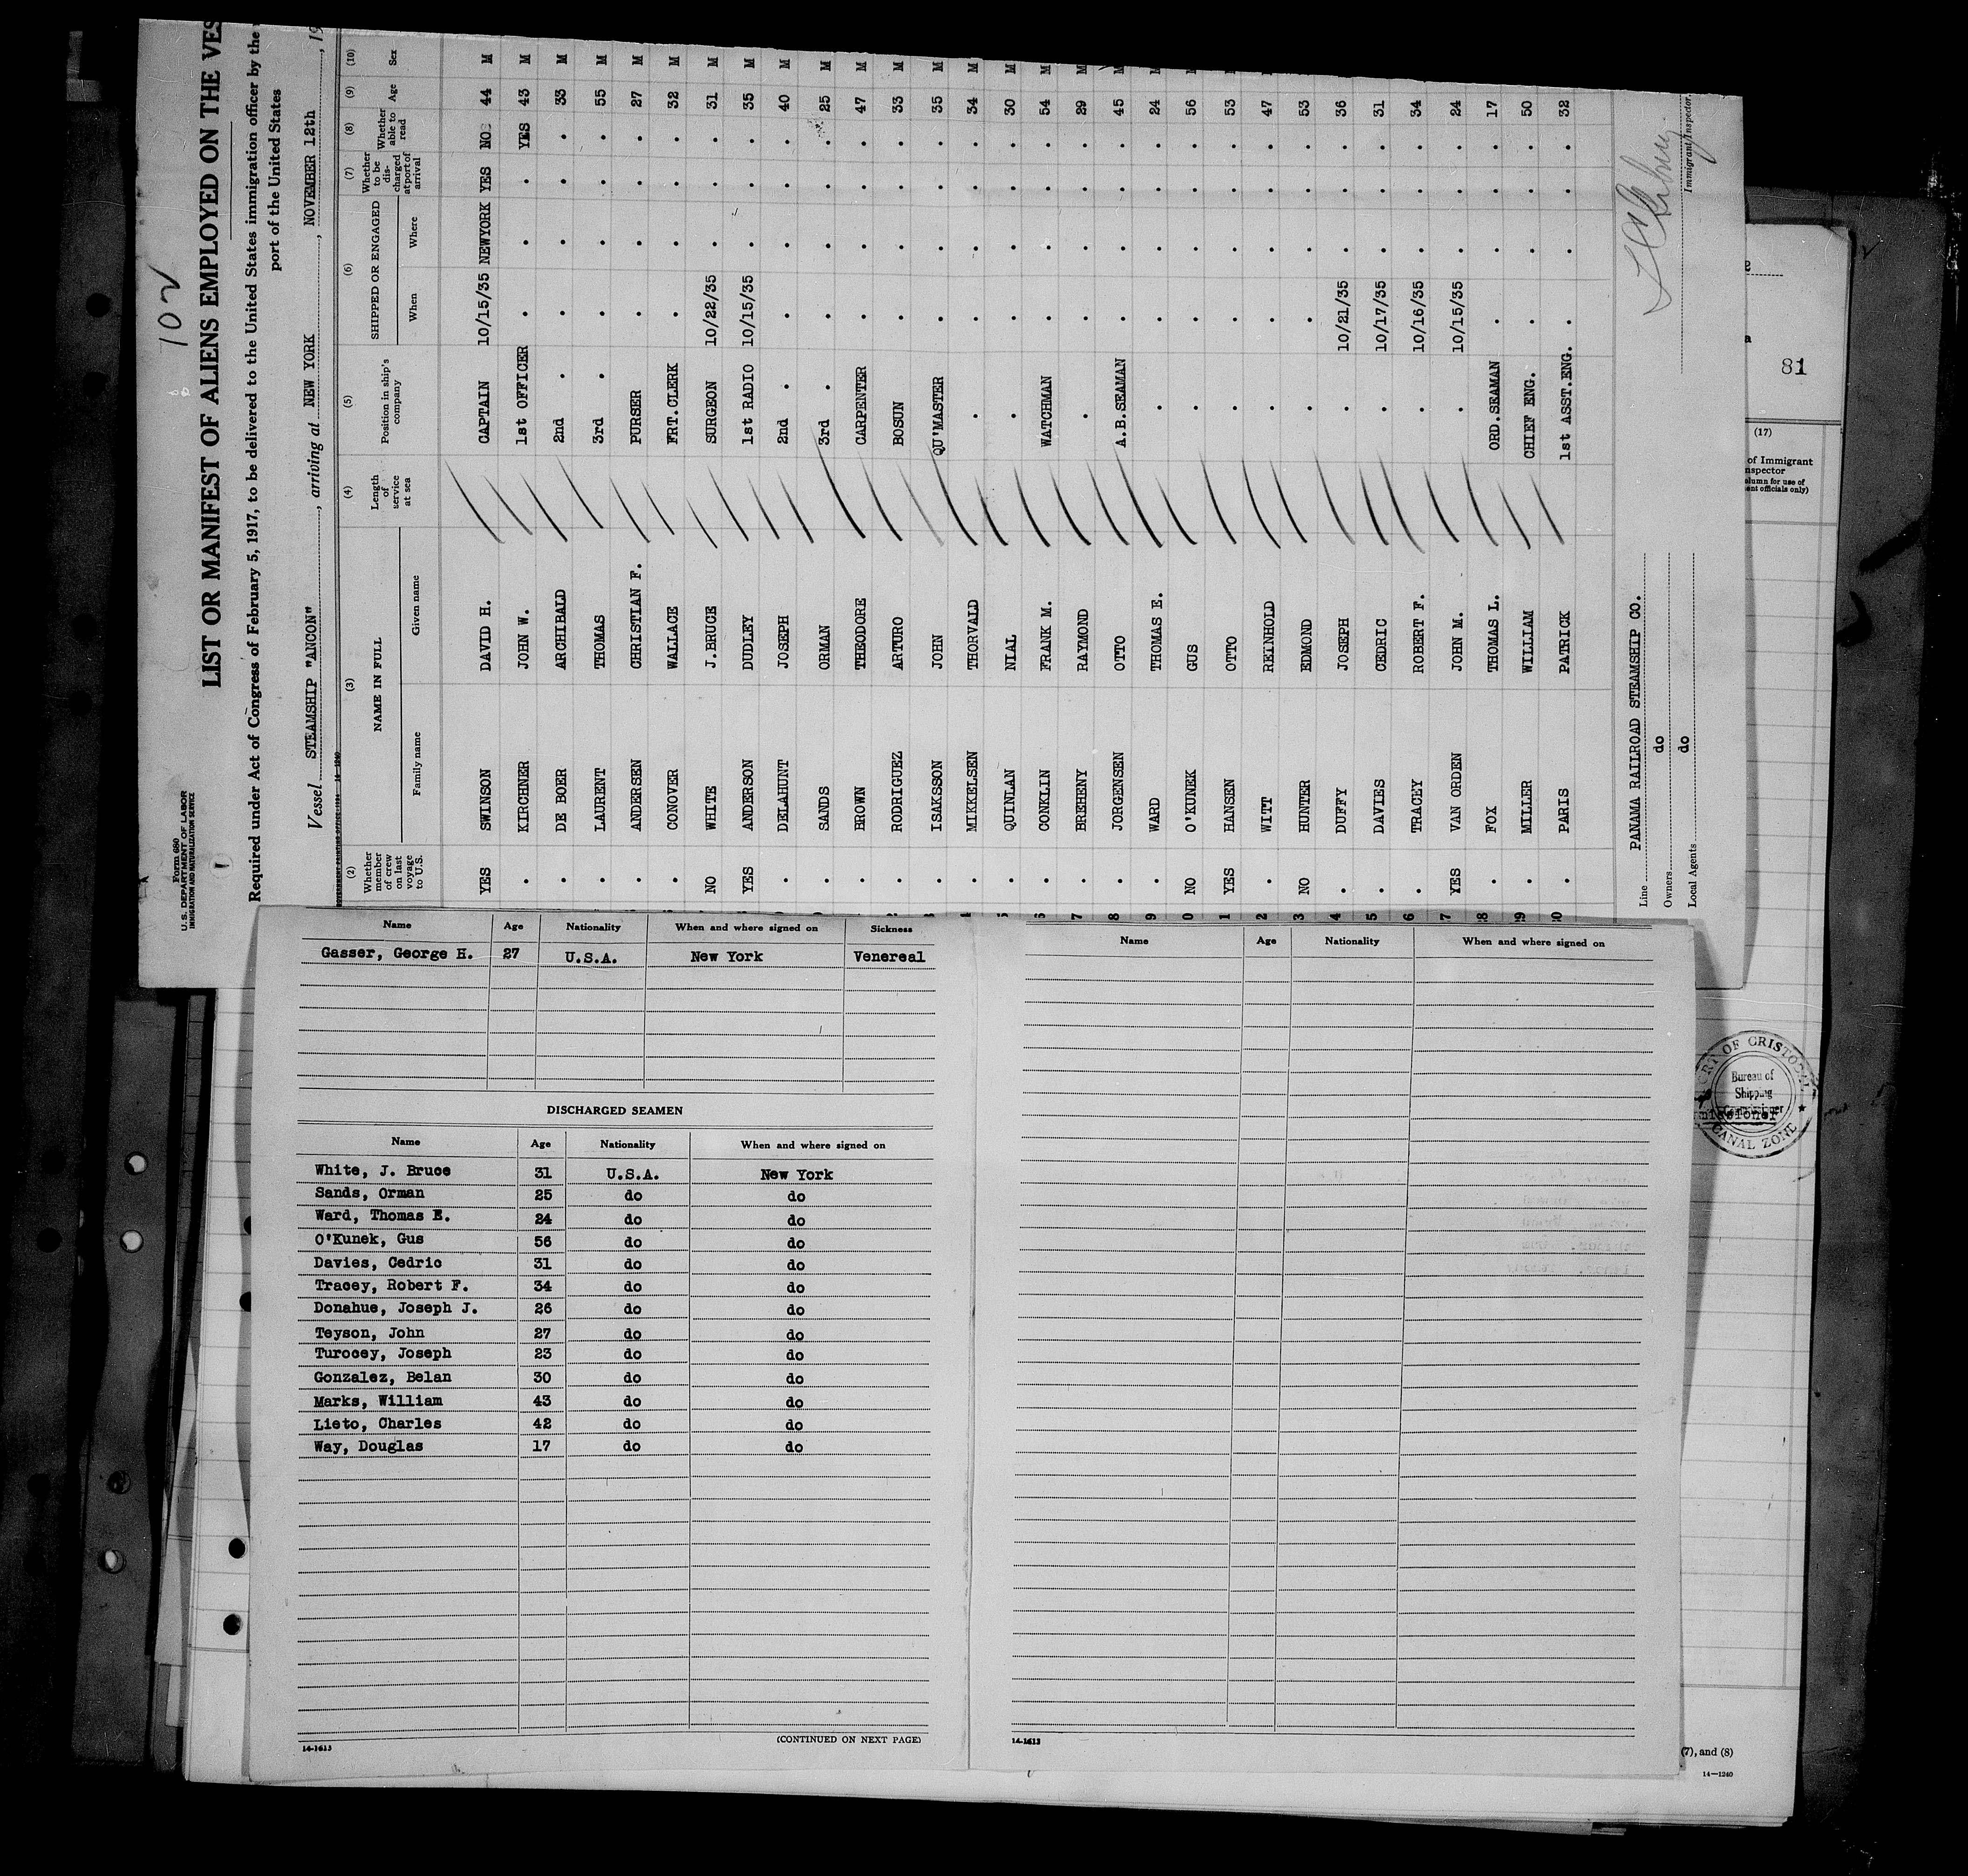 102
Form 680
U. S. DEPARTMENT OF LABOR
IMMIGRATION AND NATURALIZATION SERVICE
LIST OR MANIFEST OF ALIENS EMPLOYED ON THE VES
Required under Act of Congress of February 5, 1917, to be delivered to the United States immigration officer by the
port of the United States
Vessel STEAMSHIP "ANCON", arriving at NEW YORK, NOVEMBER 12th, 19
(2) (3) (4) (5) (6) (7) (8) (9) (10)
Whether member of crew on last voyage to U.S. NAME IN FULL Length of service at sea Position in ship's company SHIPPED OR ENGAGED Whether to be discharged at port of arrival Whether able to read Age Sex
Family name Given name When Where
YES SWINSON DAVID H. CAPTAIN 10/15/35 NEWYORK YES NO 44 M
. KIRCHNER JOHN W. 1st OFFICER . . . YES 43 M
. DE BOER ARCHIBALD 2nd . . . . . 33 M
. LAURENT THOMAS 3rd . . . . . 55 M
. ANDERSEN CHRISTIAN F. PURSER . . . . 27 M
. CONOVER WALLACE FRT.CLERK . . . . 32 M
NO WHITE J.BRUCE SURGEON 10/22/35 . . . 31 M
YES ANDERSON DUDLEY 1st RADIO 10/15/35 . . . 35 M
. DELAHUNT JOSEPH 2nd . . . . . 40 M
. SANDS ORMAN 3rd . . . . . 25 M
. BROWN THEODORE CARPENTER . . . . 47 M
. RODRIGUEZ ARTURO BOSUN . . . . 33 M
. ISAKSSON JOHN QU'MASTER . . . . 35 M
. MIKKELSEN THORVALD . . . . . 34 M
. QUINLAN NIAL . . . . . 30 M
. CONKLIN FRANK M. WATCHMAN . . . . 54 M
. BREHENY RAYMOND . . . . . 29 M
. JORGENSEN OTTO A.B.SEAMAN . . . . 45 M
. WARD THOMAS E. . . . . . 24 M
NO O'KUNEK GUS . . . . . 56 M
YES HANSEN OTTO . . . . . 53 M
. WITT REINHOLD . . . . . 47 M
NO HUNTER EDMOND . . . . . 53 M
. DUFFY JOSEPH . 10/21/35 . . . 36
. DAVIES CEDRIC . 10/17/35 . . . 31
. TRACEY ROBERT F. . 10/16/35 . . . 34
YES VAN ORDEN JOHN M. . 10/15/35 . . . 24
. FOX THOMAS L. ORD.SEAMAN . . . . 17
. MILLER WILLIAM CHIEF ENG. . . . . 50
. PARIS PATRICK 1st ASST.ENG. . . . . 32
Line PANAMA RAILROAD STEAMSHIP CO.
Owners do
Local Agents do
Immigrant Inspector.
81
(17)
of Immigrant
nspector
olumn for use of
ent officials only)
PORT OF CRISTOBAL
Bureau of
Shipping
Commissioner
CANAL ZONE
missioner
Name Age Nationality When and where signed on Sickness
Gasser, George H. 27 U.S.A. New York Venereal
DISCHARGED SEAMEN
Name Age Nationality When and where signed on
White, J. Bruce 31 U.S.A. New York
Sands, Orman 25 do do
Ward, Thomas E. 24 do do
O'Kunek, Gus 56 do do
Davies, Cedric 31 do do
Tracey, Robert F. 34 do do
Donahue, Joseph J. 26 do do
Teyson, John 27 do do
Turocey, Joseph 23 do do
Gonzalez, Belan 30 do do
Marks, William 43 do do
Lieto, Charles 42 do do
Way, Douglas 17 do do
(CONTINUED ON NEXT PAGE)
14-1613
Name Age Nationality When and where signed on
14-1613
(7), and (8)
14—1240